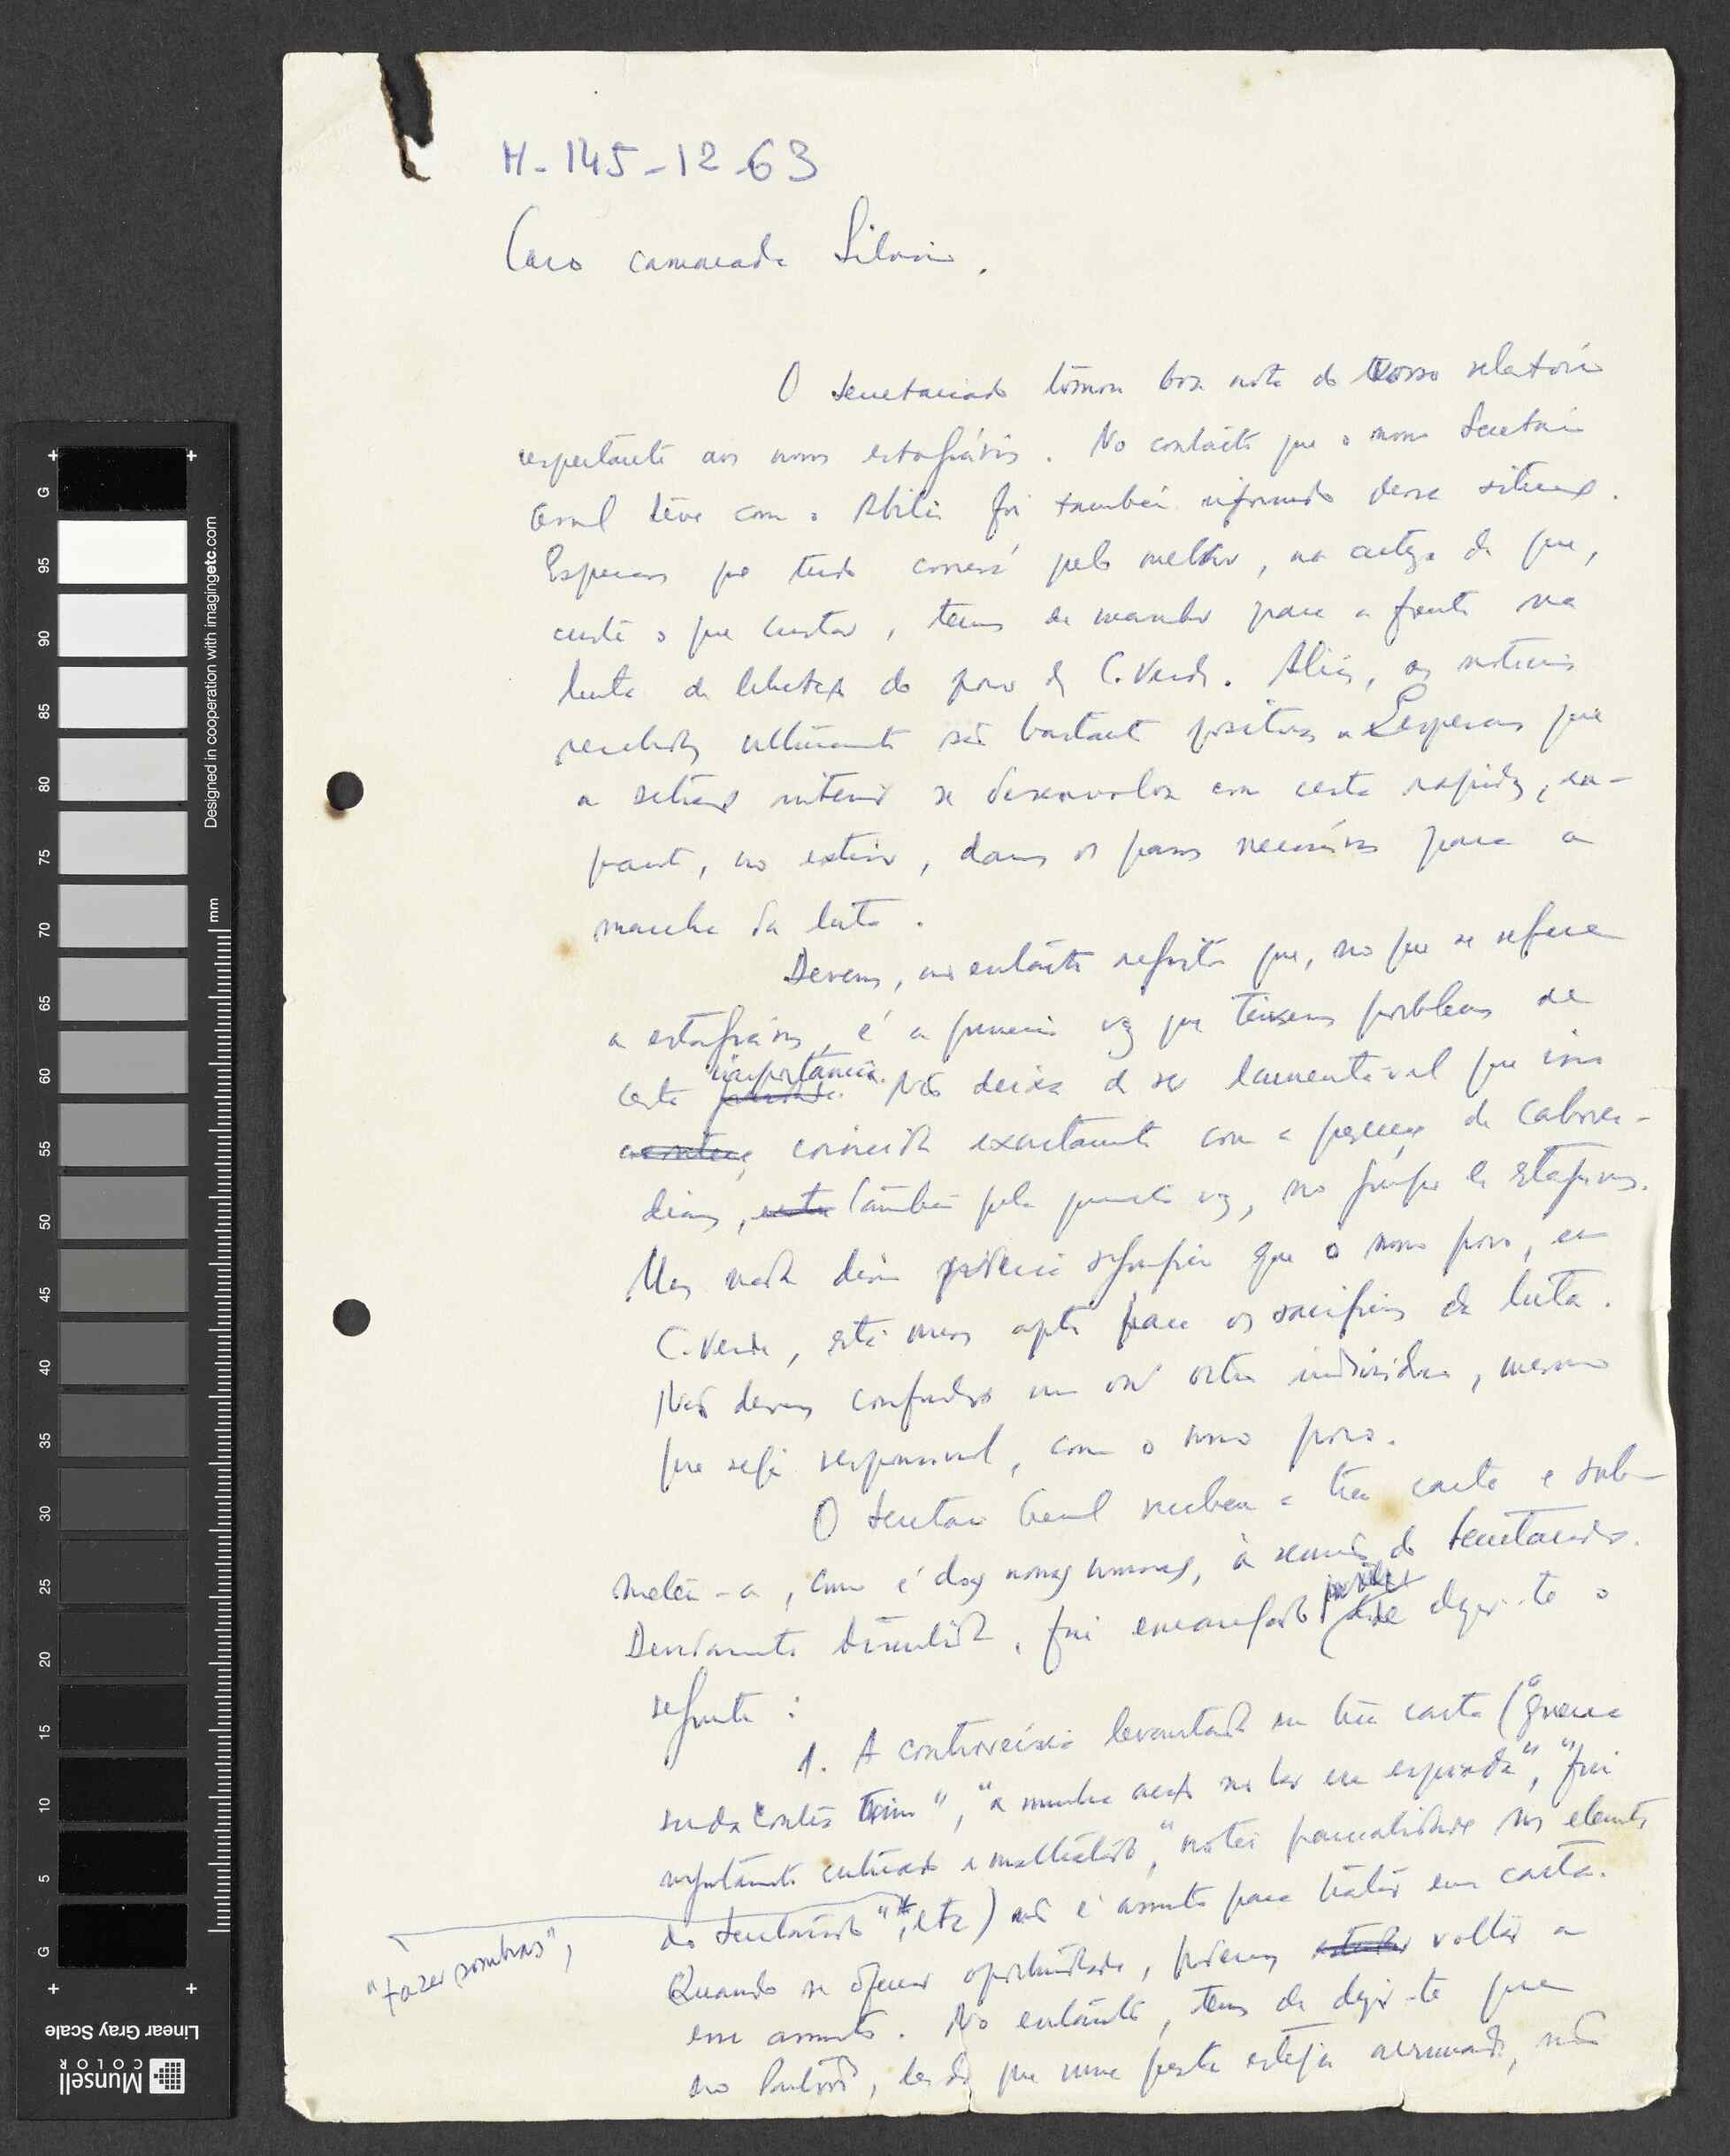 H-145-12-63
Caro camarada Silvino.
O Secretariado tomou boa nota do vosso relatório
respeitante aos novos estagiários. No contacto que o nosso Secretário
Geral teve com o Abílio foi também informado dessa situação.
Esperamos que tudo correrá pelo melhor, na certeza de que,
custe o que custar, temos de marchar para a frente na
luta de libertação do povo de C. Verde. Aliás, as notícias
recebidas ultimamente são bastante positivas e esperamos que
a situação interior se desenvolva com certa rapidez, en-
quanto, no exterior, damos os passos necessários para a
marcha da luta.
Devemos, no entanto registar que, no que se refere
a estagiários, é a primeira vez que tivemos problemas de
certa importância. Não deixa de ser lamentável que isso
coincida exactamente com a presença de cabover-
dianos, também pela primeira vez, no grupo de estagiários.
Mas nada disso poderia significar que o nosso povo, em
C. Verde, está menos apto para os sacrifícios da luta.
Não devemos confundir um ou outro indivíduo, mesmo
que seja responsável, com o nosso povo.
O Secretário Geral recebeu a tua carta e sub-
meteu-a, como é das nossas normas, à reunião do Secretariado.
Devidamente discutida, fui encarregado de dizer-te o
seguinte:
1. A controvérsia levantada na tua carta ("guerra
surda contra mim", "a minha acção no lar era esperada", "fui
injustamente criticado e maltratado", "notei parcialidade nos elementos
do Secretariado", etc) não é assunto para tratar em carta.
"fazer sombras",
Quando se oferecer oportunidade, podemos voltar a
esse assunto. No entanto, temos de dizer-te que
no Partido, desde que uma pasta esteja arrumada, não